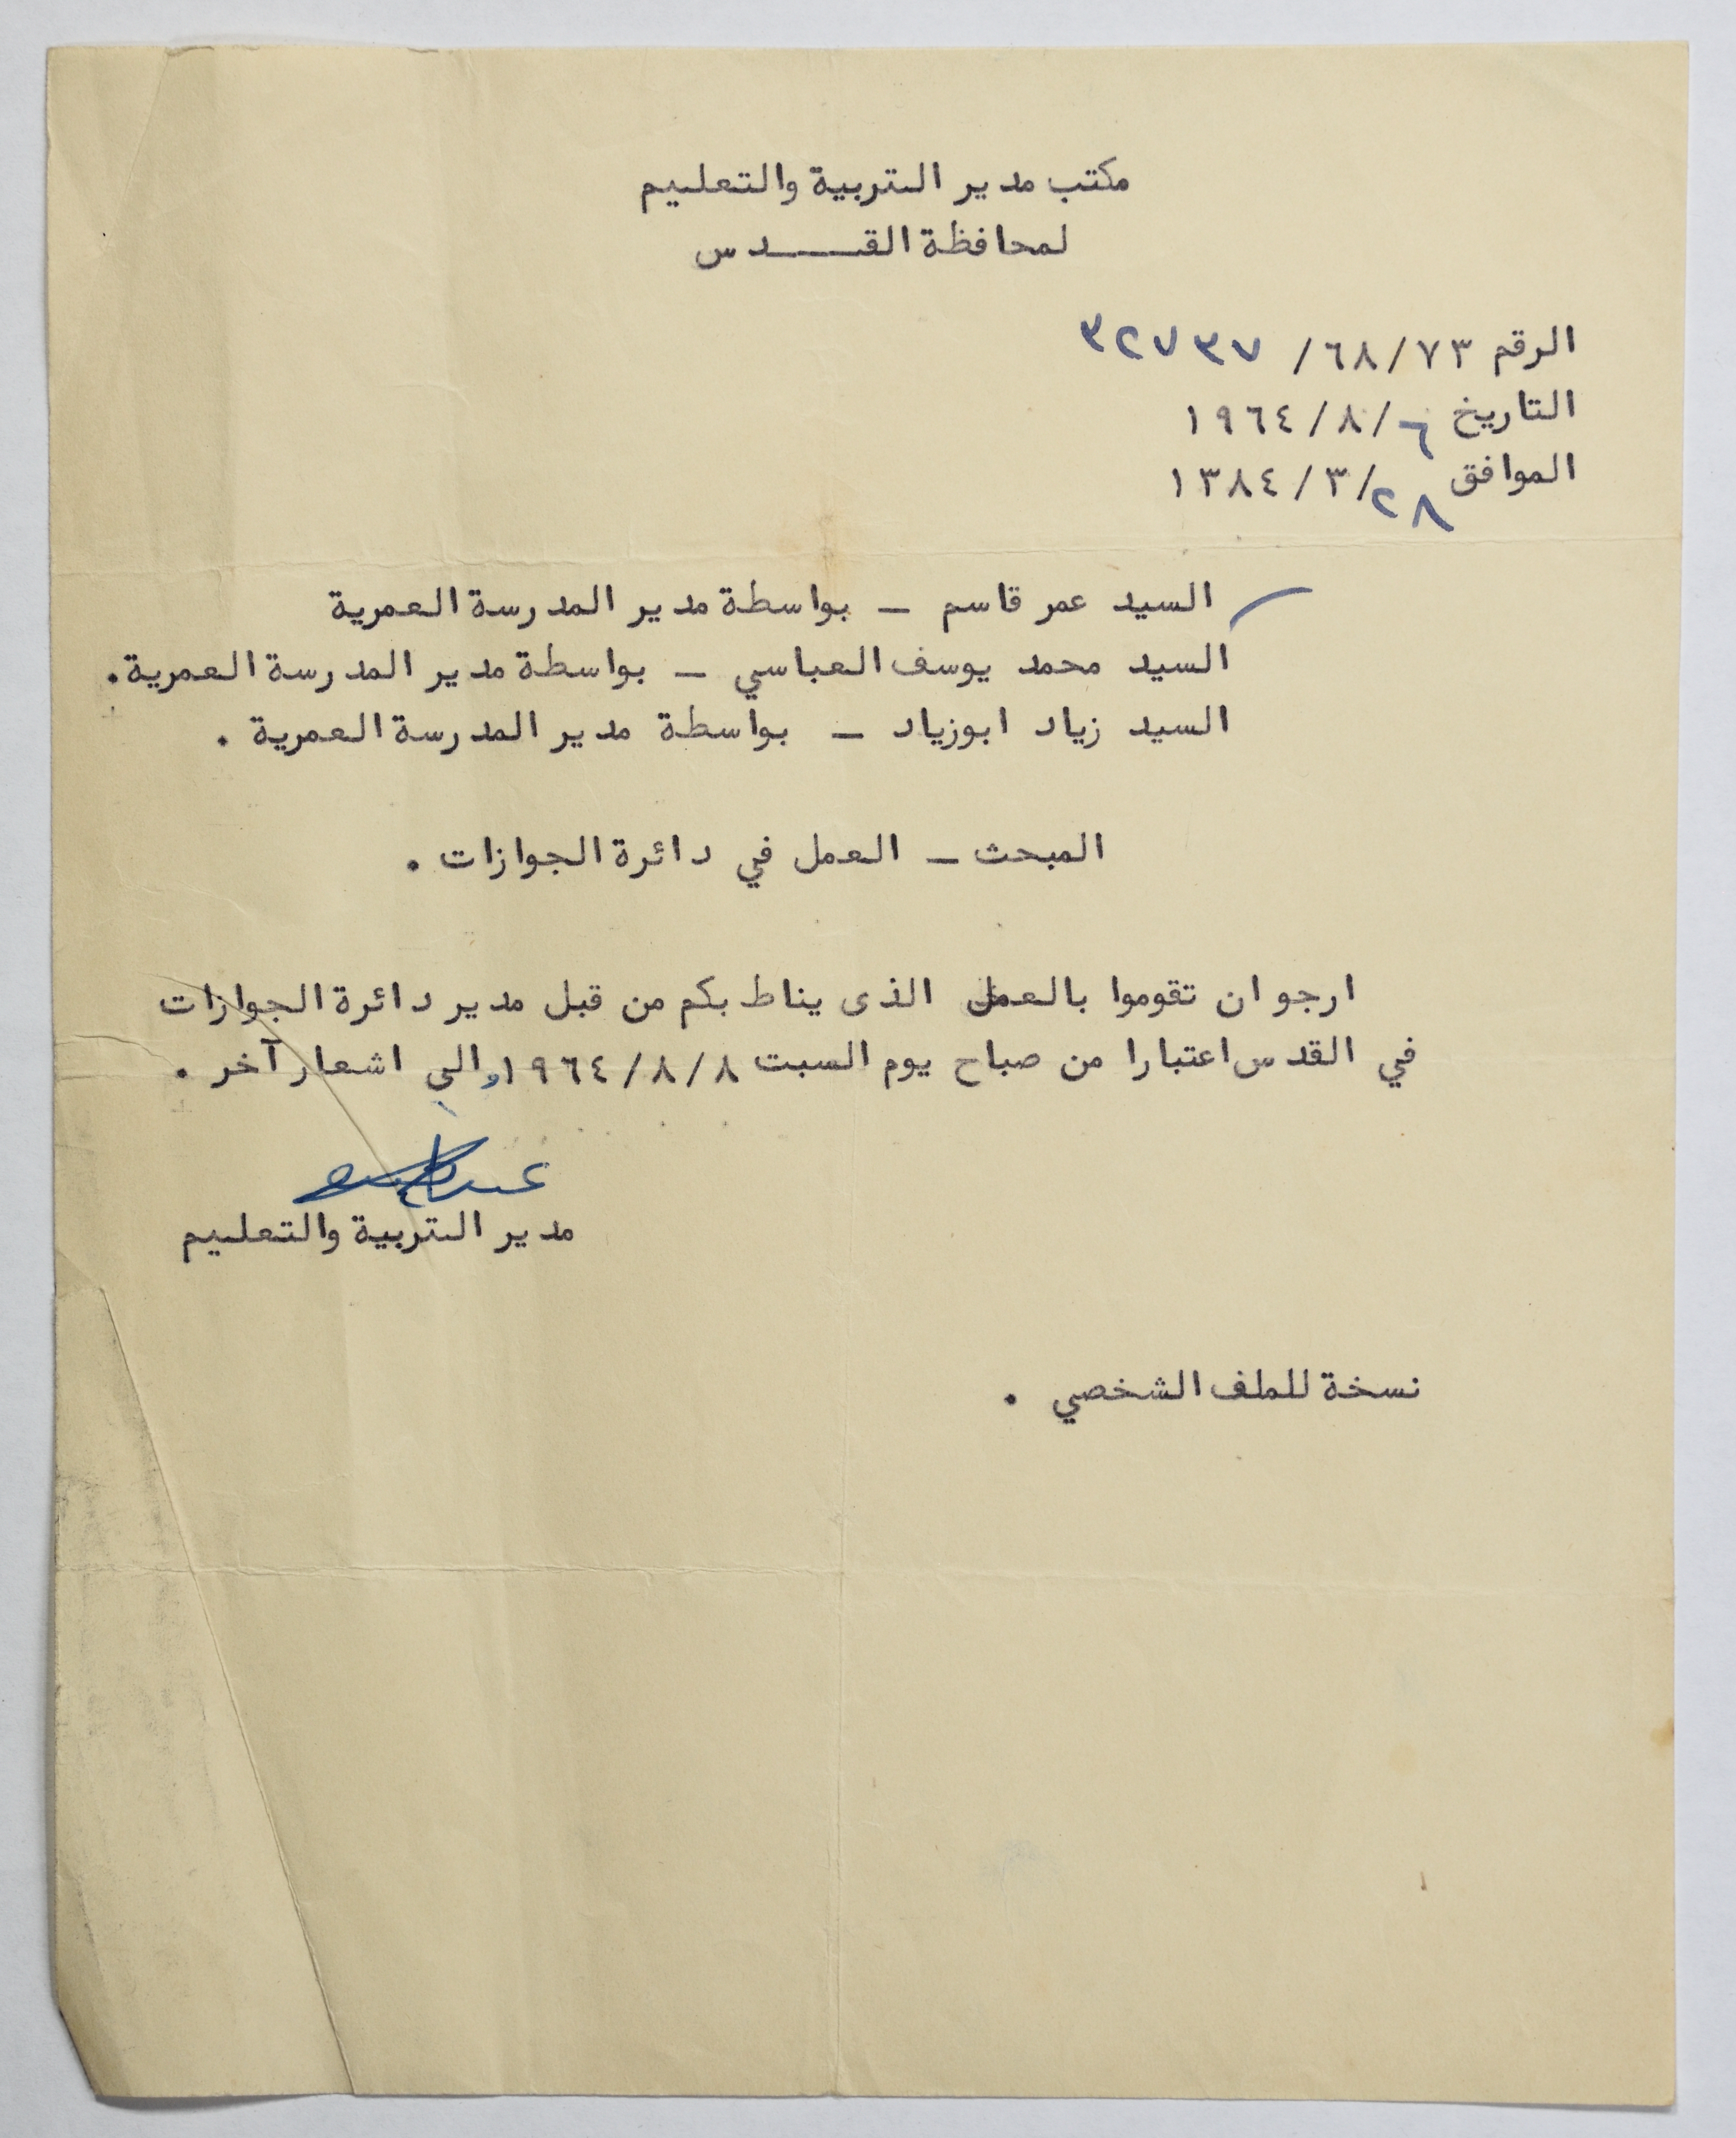 مكتب مدير التربية والتعليم
لمحافظة القـــدس
الرقم ٦٨/٧٣/ ٣٢٧٣٧
التاريخ ٦/٨/١٩٦٤
الموافق ٢٨/٣/١٣٨٤
السيد عمر قاسم _ بواسطة مدير المدرسة العمرية
السيد محمد يوسف العباسي _ بواسطة مدير المدرسة العمرية.
السيد زياد ابوزياد _ بواسطة مدير المدرسة العمرية .
المبحث _ العمل في دائرة الجوازات .
ارجو ان تقوموا بالعمل الذى يناط بكم من قبل مدير دائرة الجوازات
في القدس اعتبارا من صباح يوم السبت ٨/٨/١٩٦٤ والى اشعار آخر .
مدير التربية والتعليم
نسخة للملف الشخصي .